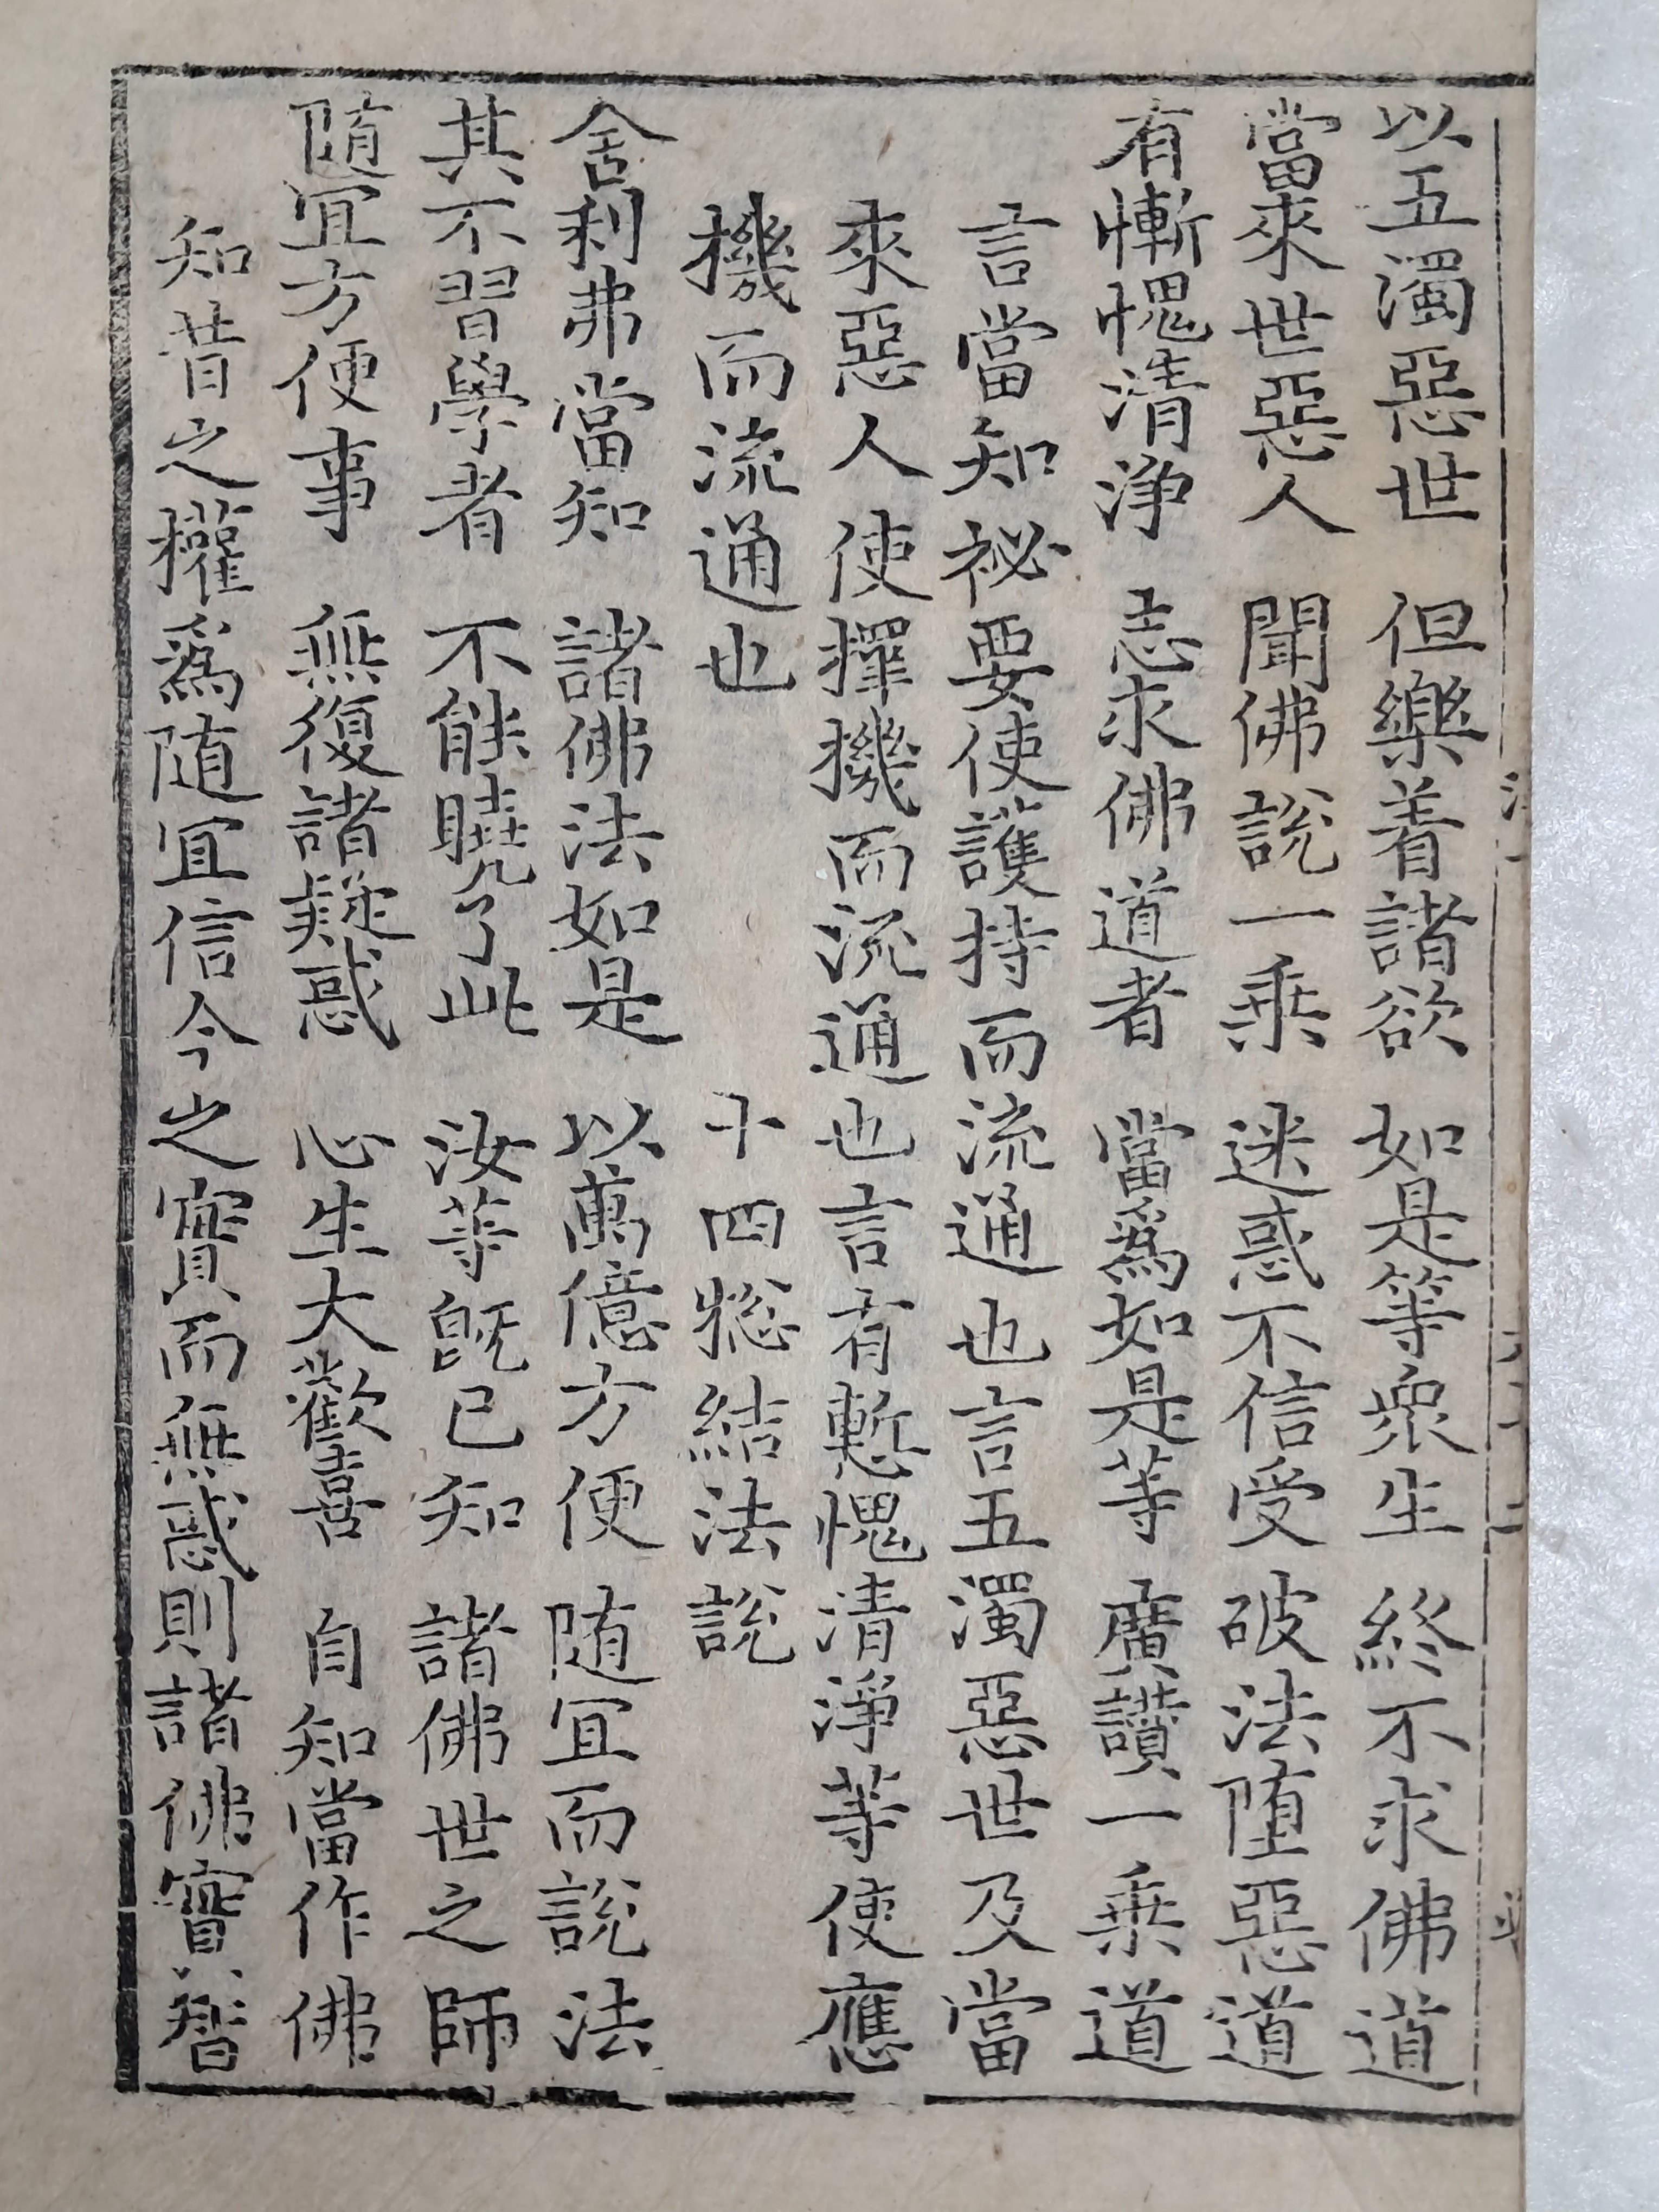 以五濁惡世 但樂着諸欲 如是等衆生 終不求佛道
當來世惡人 聞佛說一乗 迷惑不信受 破法堕惡道
有慚愧清淨 志求佛道者 當爲如是等 廣讚一乗道
言當知祕要使護持而流通也言五濁惡世及當
來惡人使擇機而流通也言有慙愧清淨等使應
機而流通也 十四緫結法說
舍利弗當知 諸佛法如是 以萬億方便 随宜而說法
其不習學者 不能曉了此 汝等旣已知 諸佛世之師
随宜方便事 無復諸疑惑 心生大歡喜 自知當作佛
知昔之權爲随宜信今之實而無惑則諸佛實智